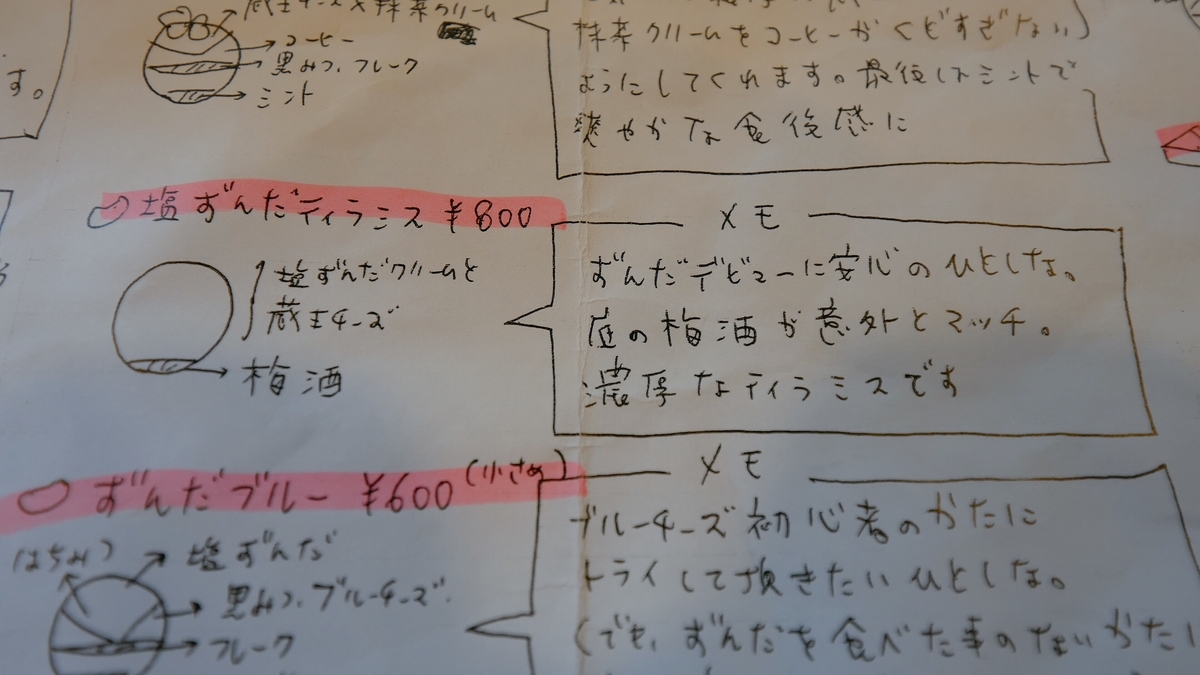 す。
蔵王チーズ×抹茶クリーム
コーヒー
黒みつ、フレーク
ミント
抹茶クリームをコーヒーがくどすぎない
ようにしてくれます。最後はミントで
爽やかな食後感に
塩ずんだティラミス ¥800
塩ずんだクリームと
蔵王チーズ
梅酒
メモ
ずんだデビューに安心のひとしな。
庭の梅酒が意外とマッチ。
濃厚なティラミスです
ずんだブルー ¥600 (小さめ)
はちみつ
塩ずんだ
黒みつ、ブルーチーズ
フレーク
メモ
ブルーチーズ初心者のかたに
トライして頂きたいひとしな。
(でも、ずんだを食べた事のないかたに